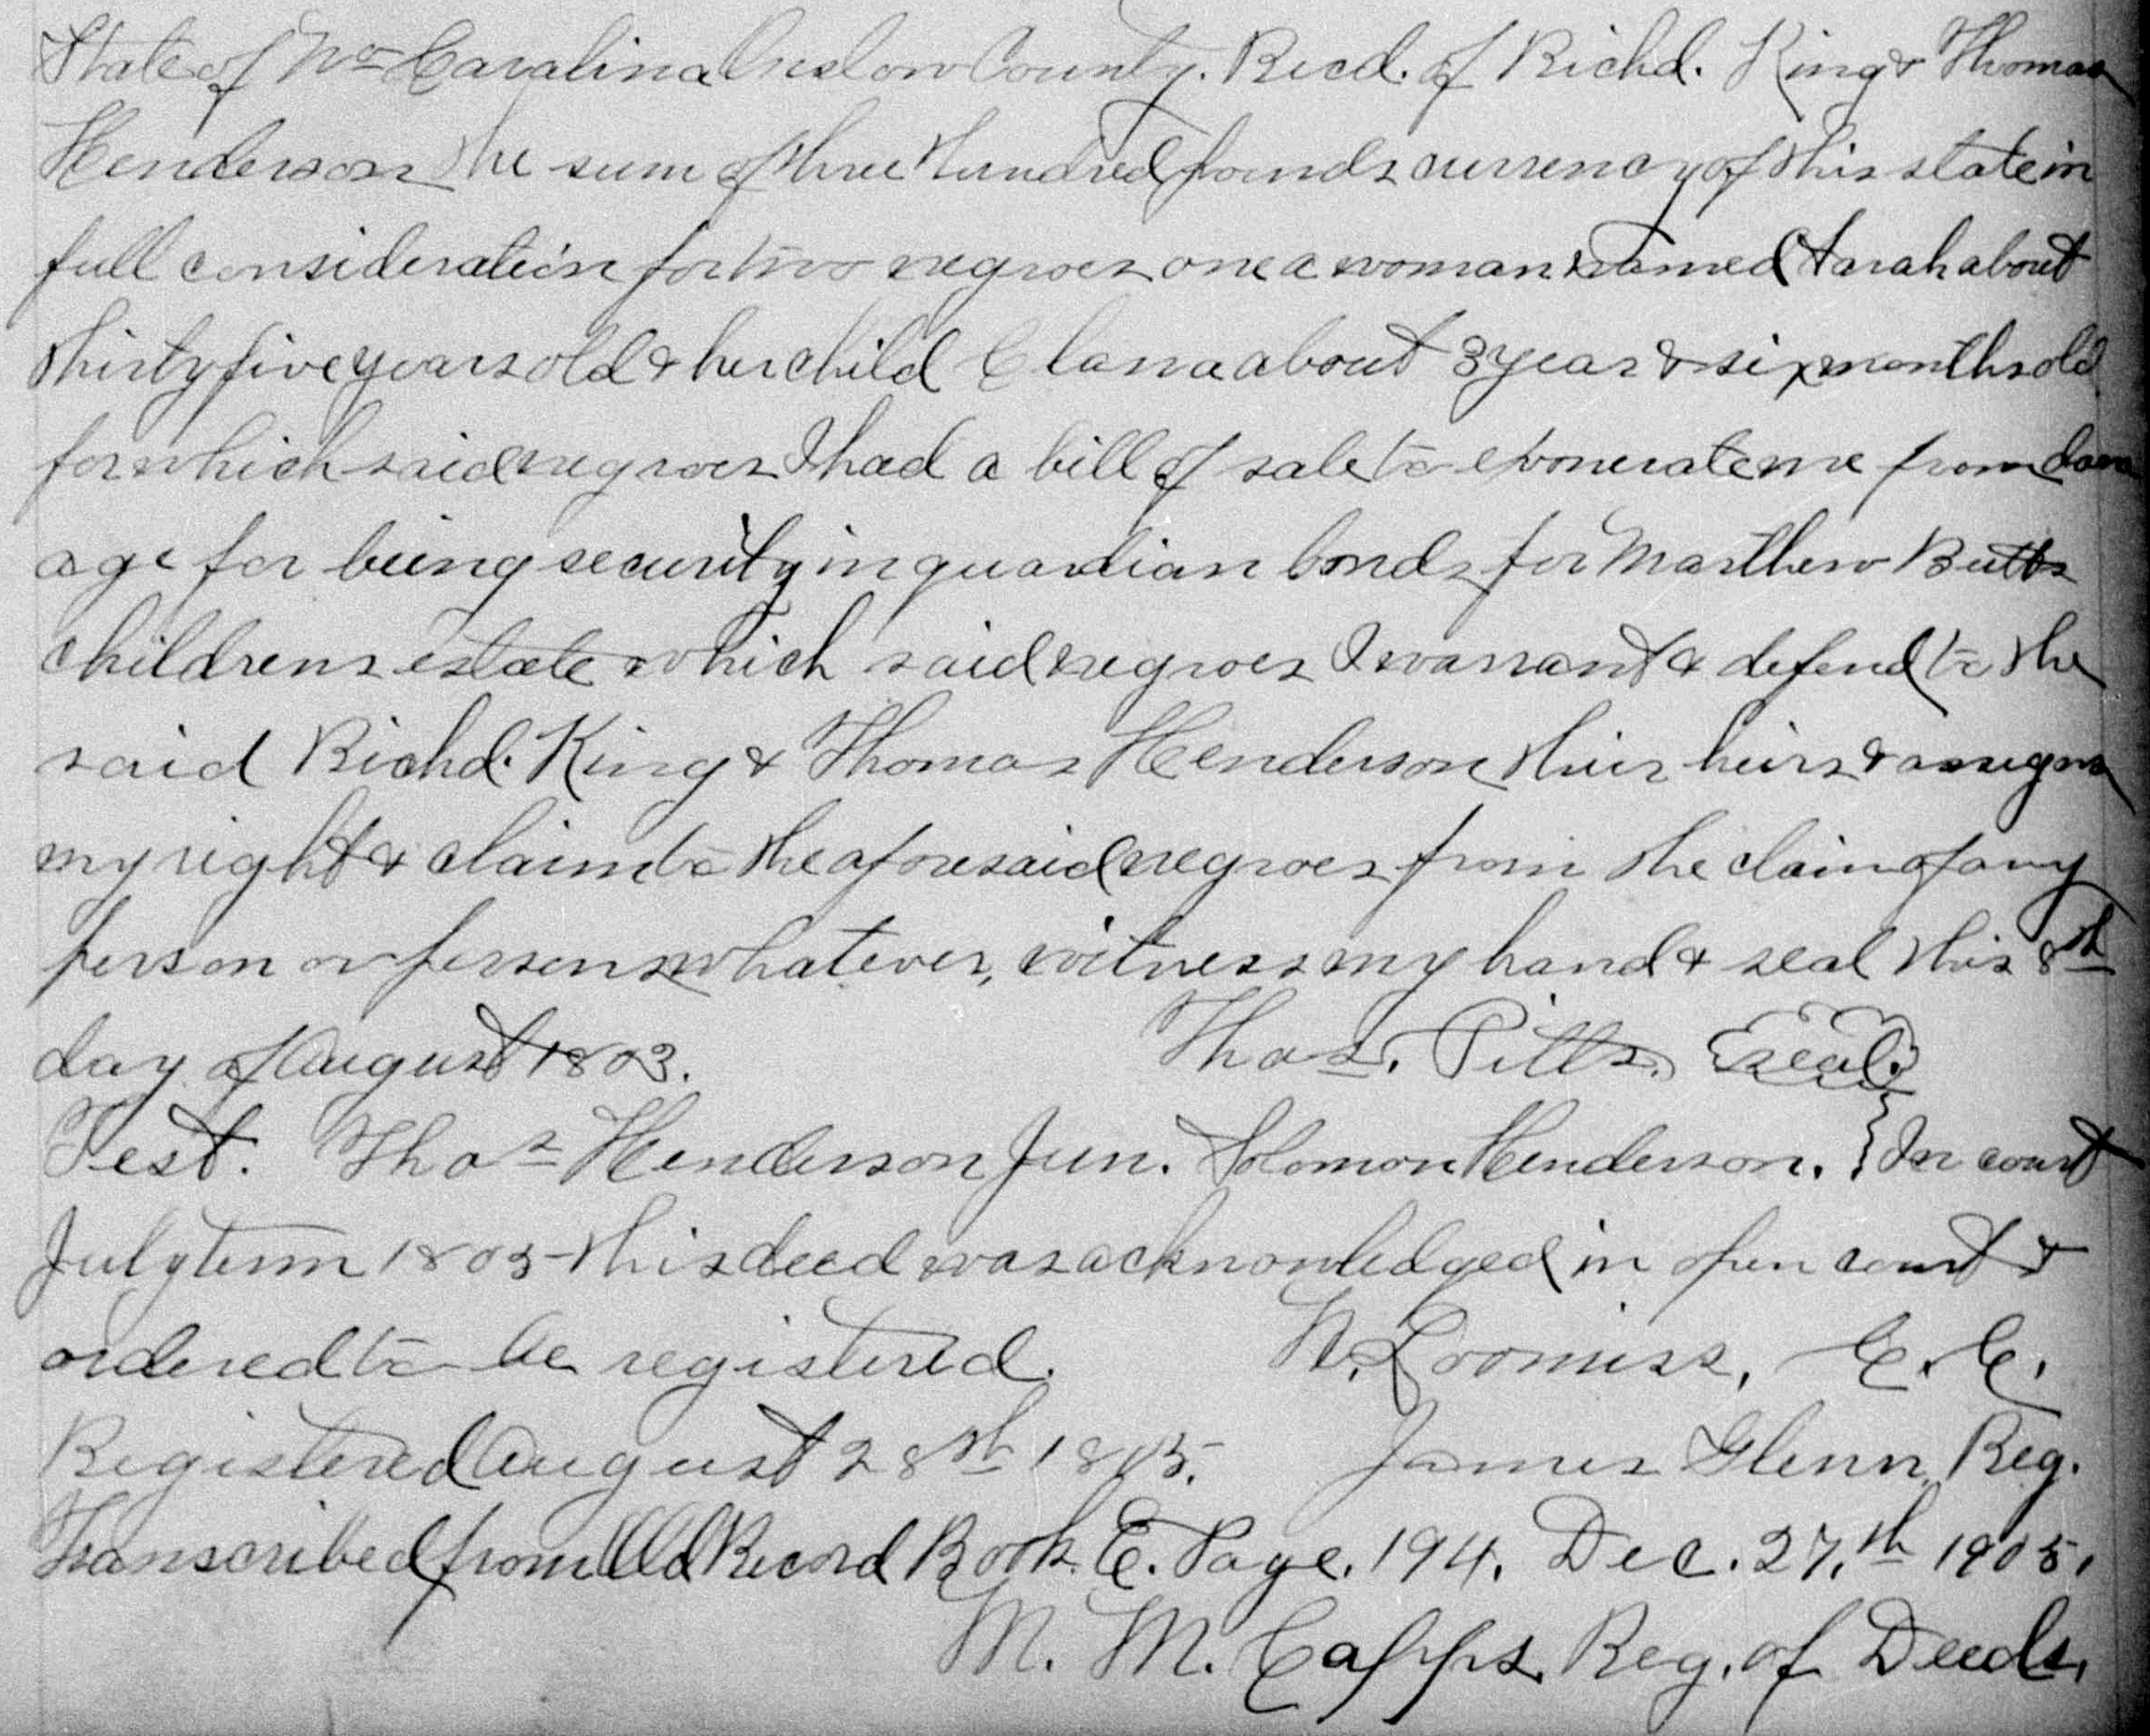 State of No Carolina Onslow County. Recd. of Richd. King & Thomas
Henderson the sum of three Hundred pounds currency of this state in
full consideration for two negroes one a woman named Sarah about
thirty five years old & her child Clana about 3 year & six months old
for which said negroes I had a bill of sale to exonerate me from dam
age for being security in guardian bonds for Marthew Butts
childrens estate which said negroes I warrant & defend to the
said Richd. King & Thomas Henderson their heirs & assigns
my right & claim to the aforesaid negroes from the claim of any
person or persons whatever, witness my hand & seal this 8th
day of August 1803. Thos. Pitts. seal.
Test. Thos Henderson Jun. Solomon Henderson. } In court
July term 1805 this deed was acknowledged in open court &
ordered to be registered. N. Loomiss, C. C.
Registered August 28th 1805. James Glenn, Reg.
Transcribed from Old Record Book E. Page. 194. Dec. 27,th 1905,
M. M. Capps. Reg. of Deeds,